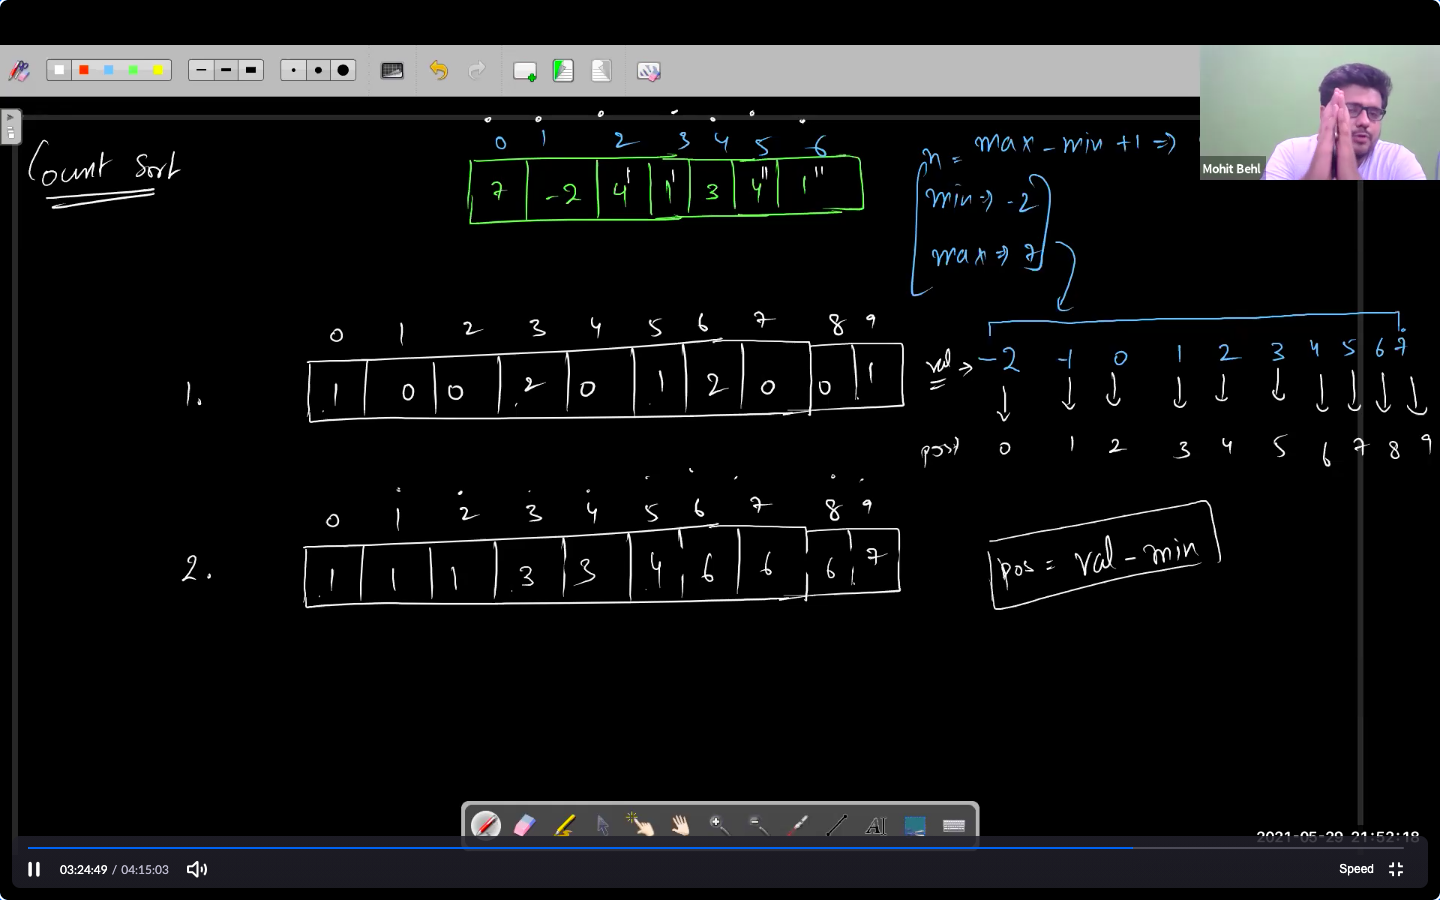 Count Sort
0 1 2 3 4 5 6
7 -2 4' 1' 3 4'' 1''
n = max - min + 1 =>
min => -2
max => 7
Mohit Behl
0 1 2 3 4 5 6 7 8 9
1. 1 0 0 2 0 1 2 0 0 1
val → -2 -1 0 1 2 3 4 5 6 7
0 1 2 3 4 5 6 7 8 9
0 1 2 3 4 5 6 7 8 9
2. 1 1 1 3 3 4 6 6 6 7
pos = val - min
AI
2021-05-29 21:52:18
03:24:49 / 04:15:03
Speed